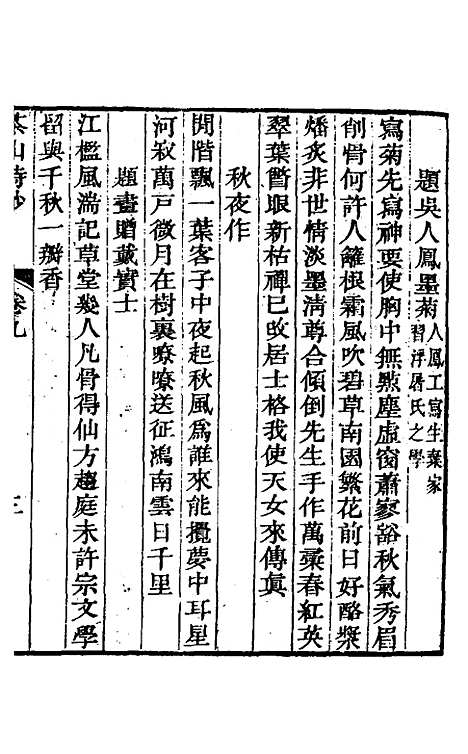 題吳人鳳墨菊人鳳工寫生棄家習浮屠氏之學
寫菊先寫神要使胸中無點塵虛窗蕭寥豁秋氣秀眉
削骨何許人籬根霜風吹碧草南園繁花前日好酪漿
燔炙非世情淡墨清尊合傾倒先生手作萬稾春紅英
翠葉瞥眼新枯禪已改居士格我使天女來傳眞
秋夜作
閒階飄一葉客子中夜起秋風爲誰來能攪夢中耳星
河寂萬戸微月在樹裏嘹嘹送征鴻南雲日千里
題畫贈戴實士
江檻風湍記草堂幾人凡骨得仙方趨庭未許宗文學
留與千秋一瓣香
山詩鈔 卷九 三